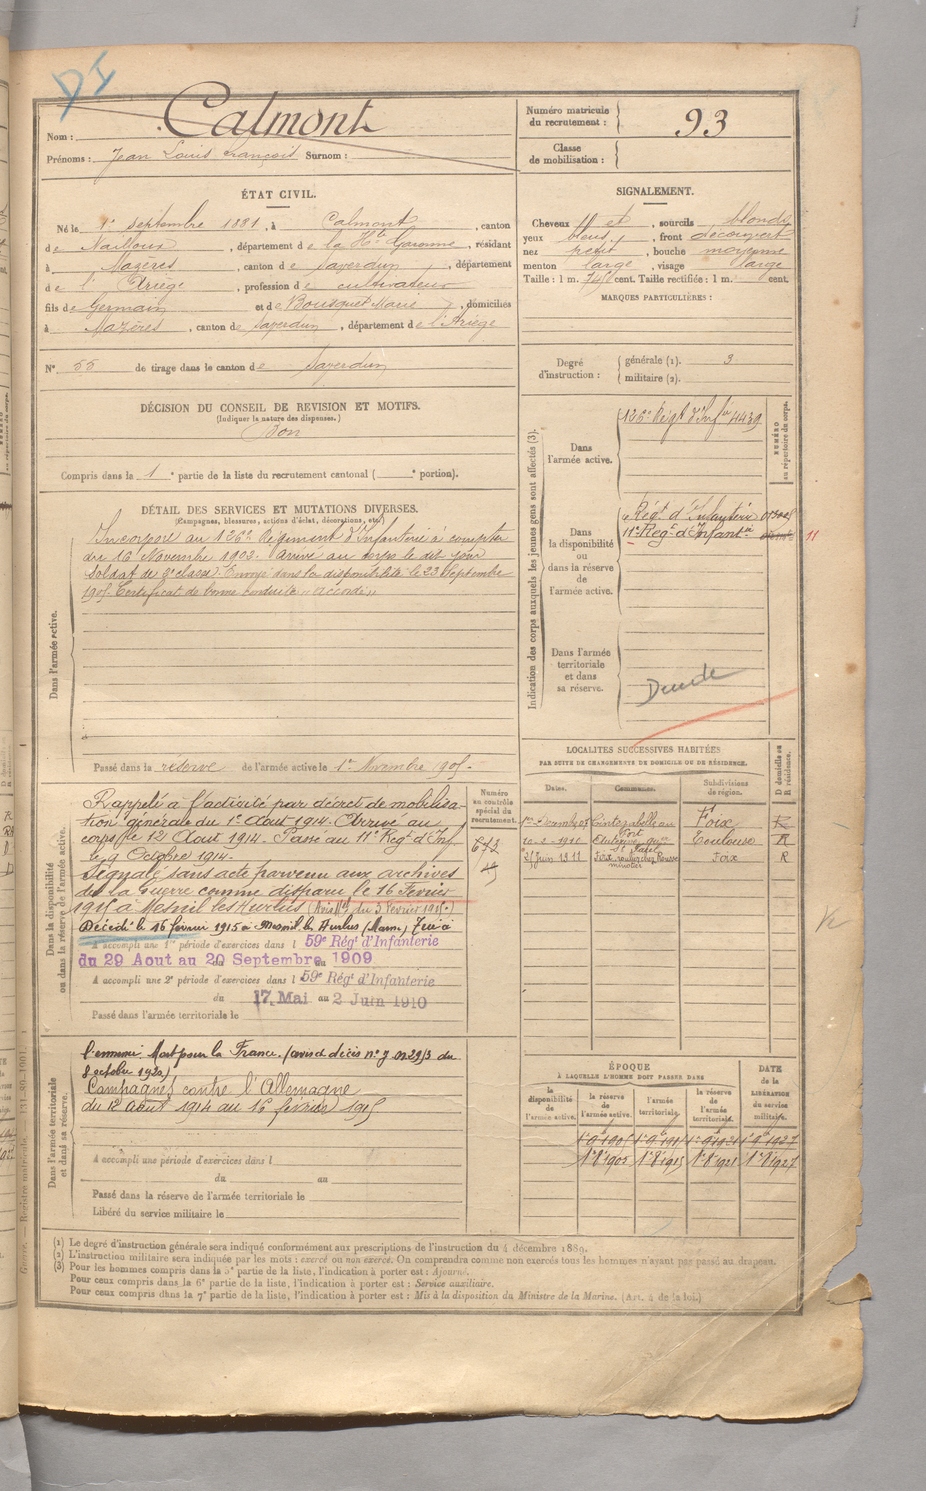 DI
Nom : Calmont
Prénoms : Jean Louis François Surnom :
Numéro matricule du recrutement : 93
Classe de mobilisation :
ÉTAT CIVIL.
Né le 1er Septembre 1881, à Calmont, canton
de Nailloux, département de la Hte Garonne, résidant
à Mazères, canton de Saverdun, département
de l'Ariège, profession de cultivateur
fils de Germain et de Bousquet Marie, domiciliés
à Mazères, canton de Saverdun, département de l'Ariège
N° 55 de tirage dans le canton de Saverdun
SIGNALEMENT.
Cheveux et, sourcils blonds
yeux bleus, front découvert
nez petit, bouche moyenne
menton large, visage large
Taille : 1 m. cent. Taille rectifiée : 1 m. cent.
MARQUES PARTICULIÈRES :
Degré d'instruction : générale (1). 3
militaire (2).
DÉCISION DU CONSEIL DE REVISION ET MOTIFS.
(Indiquer la nature des dispenses.)
Bon
Compris dans la 1e partie de la liste du recrutement cantonal ( e portion).
DÉTAIL DES SERVICES ET MUTATIONS DIVERSES.
(Campagnes, blessures, actions d'éclat, décorations, etc.)
Dans l'armée active.
Incorporé au 126e Régiment d'Infanterie à compter
du 16 Novembre 1902. arrivé au corps le dit jour
Soldat de 2e classe. Envoyé dans la disponibilité le 23 Septembre
1905. Certificat de bonne conduite "accordé"
Passé dans la réserve de l'armée active le 1er Novembre 1905.
Indication des corps auxquels les jeunes gens sont affectés (3).
NUMÉRO au répertoire du corps.
Dans l'armée active.
126e Régt d'Infie 4439
Dans la disponibilité ou dans la réserve de l'armée active.
Régt d'Infanterie
11e Régt d'Infantie
11
Dans l'armée territoriale et dans sa réserve.
Dans la disponibilité ou dans la réserve de l'armée active.
Numéro au contrôle spécial du recrutement.
672
Rappelé à l'activité par décret de mobilisa-
tion générale du 1er Août 1914. Arrivé au
corps le 12 Août 1914. Passé au 11e Régt d'Inf.
le 9 Octobre 1914.
Signalé sans acte parvenu aux archives
de la Guerre comme disparu le 16 Février
1915 à Mesnil les Hurlus
Décédé le 16 février 1915 à Mesnil les Hurlus (Marne) Tué à
A accompli une 1re période d'exercices dans l 59e Régt d'Infanterie
du 29 Aout au 20 Septembre 1909
A accompli une 2e période d'exercices dans l 59e Régt d'Infanterie
du 17 Mai au 2 Juin 1910
Passé dans l'armée territoriale le
LOCALITÉS SUCCESSIVES HABITÉES
PAR SUITE DE CHANGEMENTS DE DOMICILE OU DE RÉSIDENCE.
Dates. Communes. Subdivisions de région. D domicile ou R résidence.
Foix R
10-2-1910 Toulouse R
21 Juin 1911 Foix R
Dans l'armée territoriale et dans sa réserve.
l'ennemi. Mort pour la France. (avis de décès du
8 octobre 1920)
Campagnes contre l'Allemagne
du 12 Août 1914 au 16 février 1915
A accompli une période d'exercices dans l
du au
Passé dans la réserve de l'armée territoriale le
Libéré du service militaire le
ÉPOQUE
À LAQUELLE L'HOMME DOIT PASSER DANS
la disponibilité de l'armée active. la réserve de l'armée active. l'armée territoriale. la réserve de l'armée territoriale. DATE de la LIBÉRATION du service militaire.
(1) Le degré d'instruction générale sera indiqué conformément aux prescriptions de l'instruction du 4 décembre 1889.
(2) L'instruction militaire sera indiquée par les mots : exercé ou non exercé. On comprendra comme non exercés tous les hommes n'ayant pas passé au drapeau.
(3) Pour les hommes compris dans la 5e partie de la liste, l'indication à porter est : Ajourné.
Pour ceux compris dans la 6e partie de la liste, l'indication à porter est : Service auxiliaire.
Pour ceux compris dans la 7e partie de la liste, l'indication à porter est : Mis à la disposition du Ministre de la Marine. (Art. 4 de la loi.)